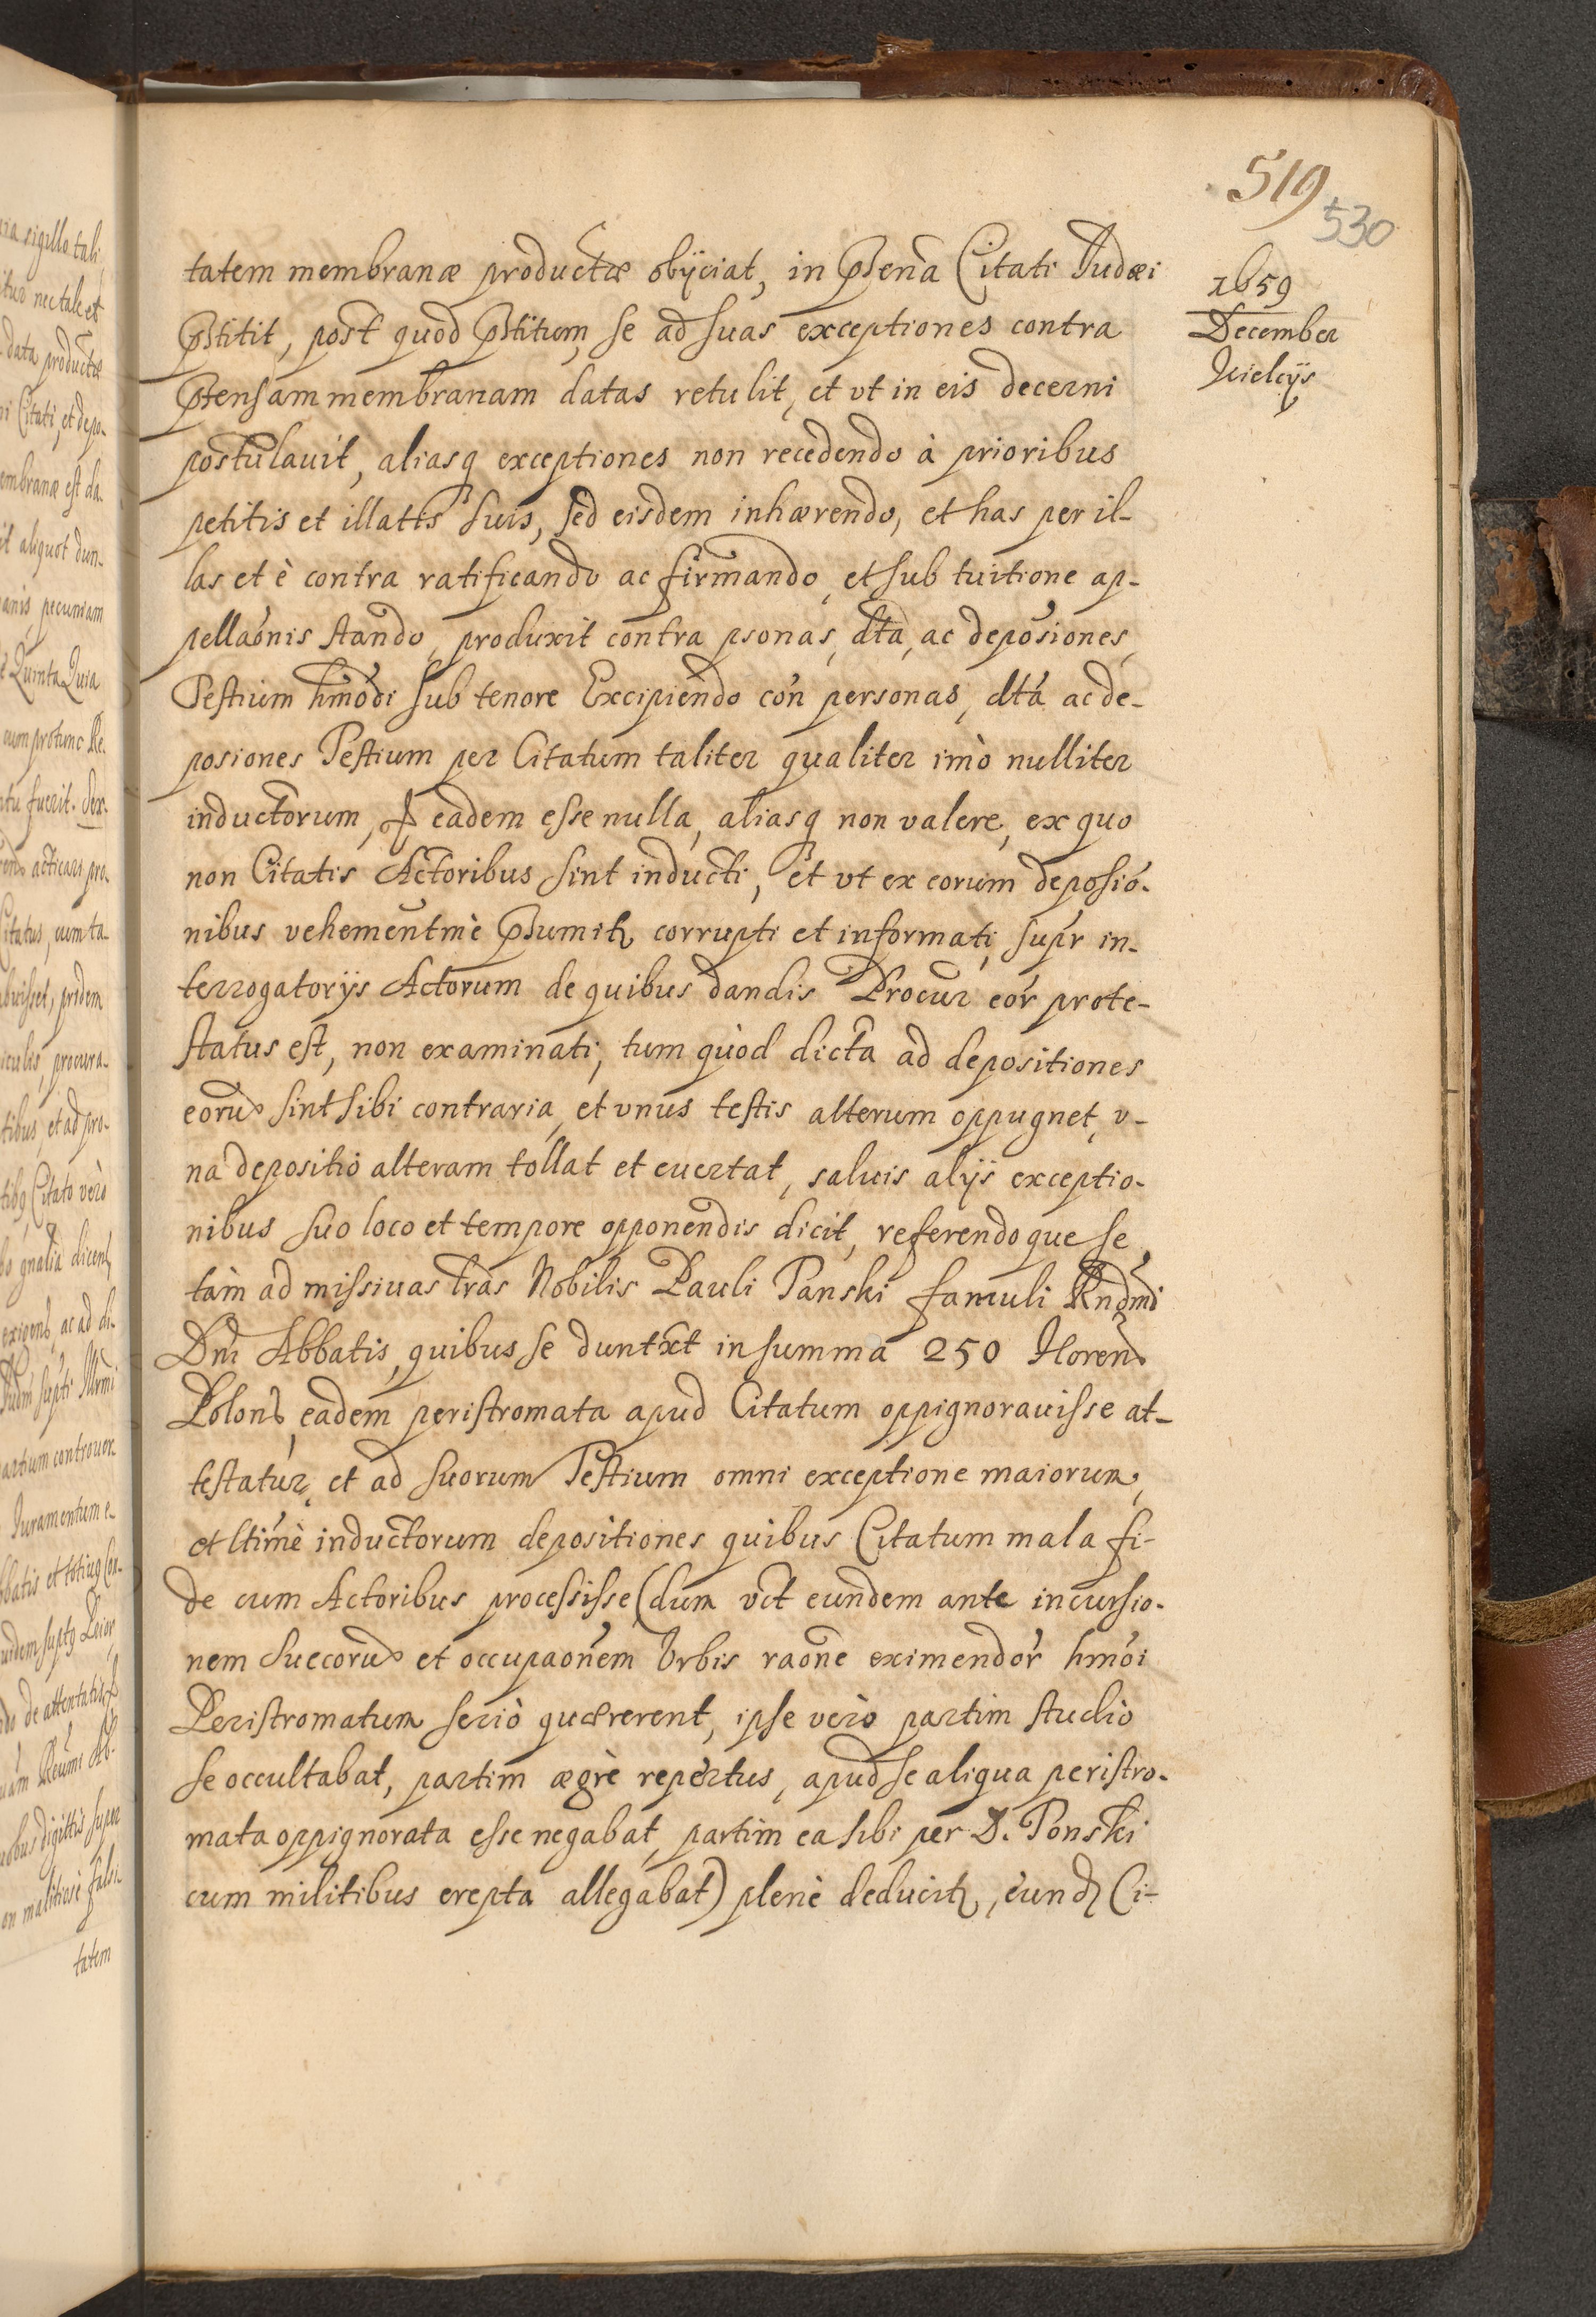 519
530
1659
December
Kielcijs
tatem membranæ productæ obijciat, in Pñsena Citati Judæi
Pñstitit, post quod Pñstitum, se ad suas exceptiones contra
Ptensam membranam datas retulit, et vt in eis decerni
postulauit, aliasq exceptiones non recedendo à prioribus
petitis et illatis suis, sed eisdem inhærendo, et has per il-
las et è contra ratificando ac firmando, et sub tuitione ap-
pellaonis stando, produxit contra psonas, dta, ac deposiones
Testium hmodi sub tenore Excipiendo con personas, dta ac de-
posiones Testium per Citatum taliter qualiter imò nulliter
inductorum, eadem esse nulla, aliasq non valere, ex quo
non Citatis Actoribus sint inducti, et vt ex eorum deposio-
nibus vehementmè Psumitr corrupti et informati, supr in-
terrogatorijs Actorum de quibus dandis Procur eor prote-
status est, non examinati, tum quòd dicta ad depositiones
eoru sint sibi contraria, et vnus testis alterum oppugnet, v-
na depositio alteram tollat et euertat, saluis alijs exceptio-
nibus suo loco et tempore opponendis dicit, referendoque se
tàm ad missiuas tras Nobilis Pauli Panski famuli Rndmi
Dni Abbatis, quibus se duntxt in summa 250 floren
Polon, eadem peristromata apud Citatum oppignorauisse at-
testatur, et ad suorum Testium omni exceptione maiorum,
et ltimè inductorum depositiones quibus Citatum mala fi-
de cum Actoribus processisse (dum vct eundem ante incursio-
nem Suecoru et occupaonem Vrbis raone eximendor hmoi
Peristromatum seriò quærerent, ipse verò partim studio
se occultabat, partim ægrè repertus, apud se aliqua peristro-
mata oppignorata esse negabat, partim ea sibi per D. Ponski
cum militibus erepta allegabat) plenè deducitr, eund Ci-